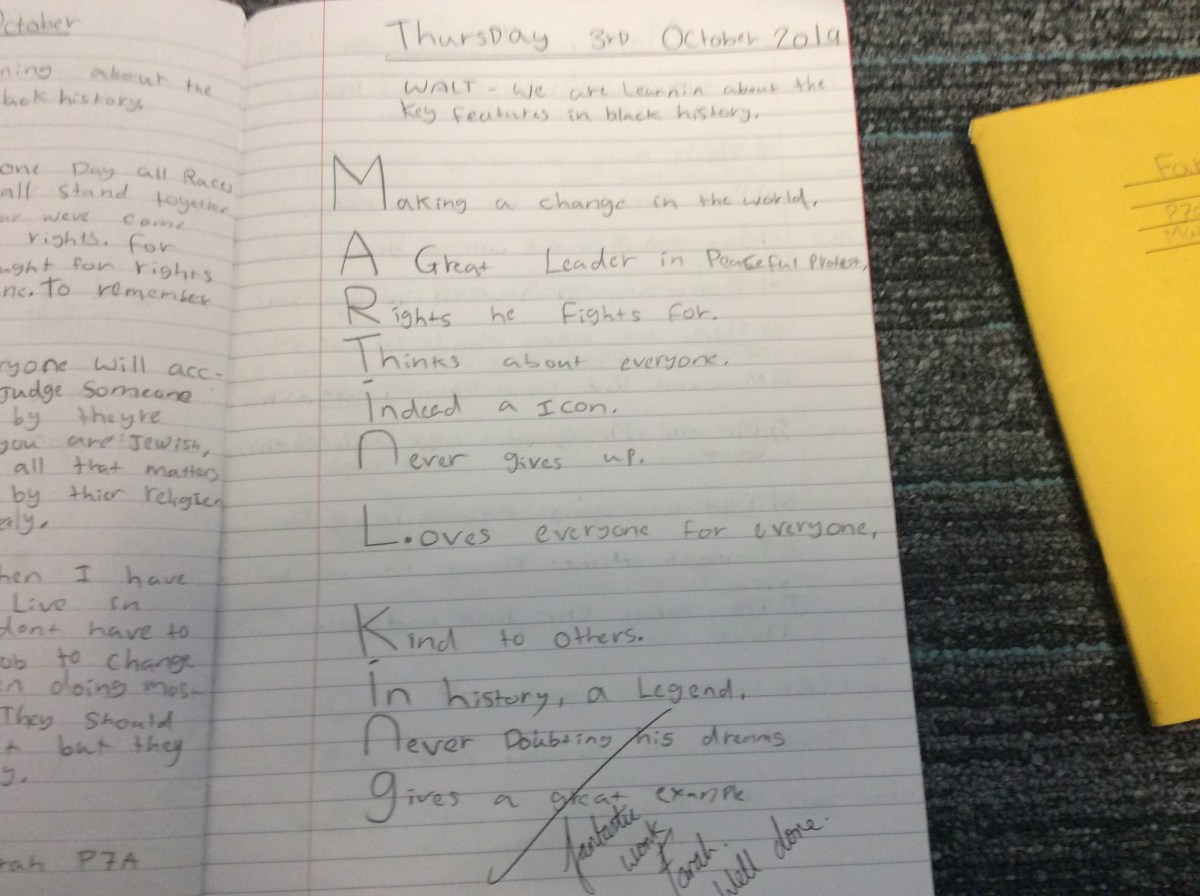 October
ning about the
lack history.
one Day all Races
all stand together
ar weve come
rights. for
ught for rights
nc. To remember
ryone will acc-
judge Someone
by theyre
you are Jewish,
all that matters
by thier religion
aly.
hen I have
Live in
dont have to
ob to change
n doing mos-
They Should
t but they
y.
rah P7A
Thursday 3rd October 2019
WALT - We are Learnin about the
key features in black history.
Making a change in the world.
A Great Leader in Peaceful Protest,
Rights he fights for.
Thinks about everyone.
indeed a Icon.
never gives up.
L.oves everyone for everyone,
Kind to others.
in history, a Legend,
never Doubting his dreams
gives a great example
fantastic
work
Farah.
Well done.
Far
P7